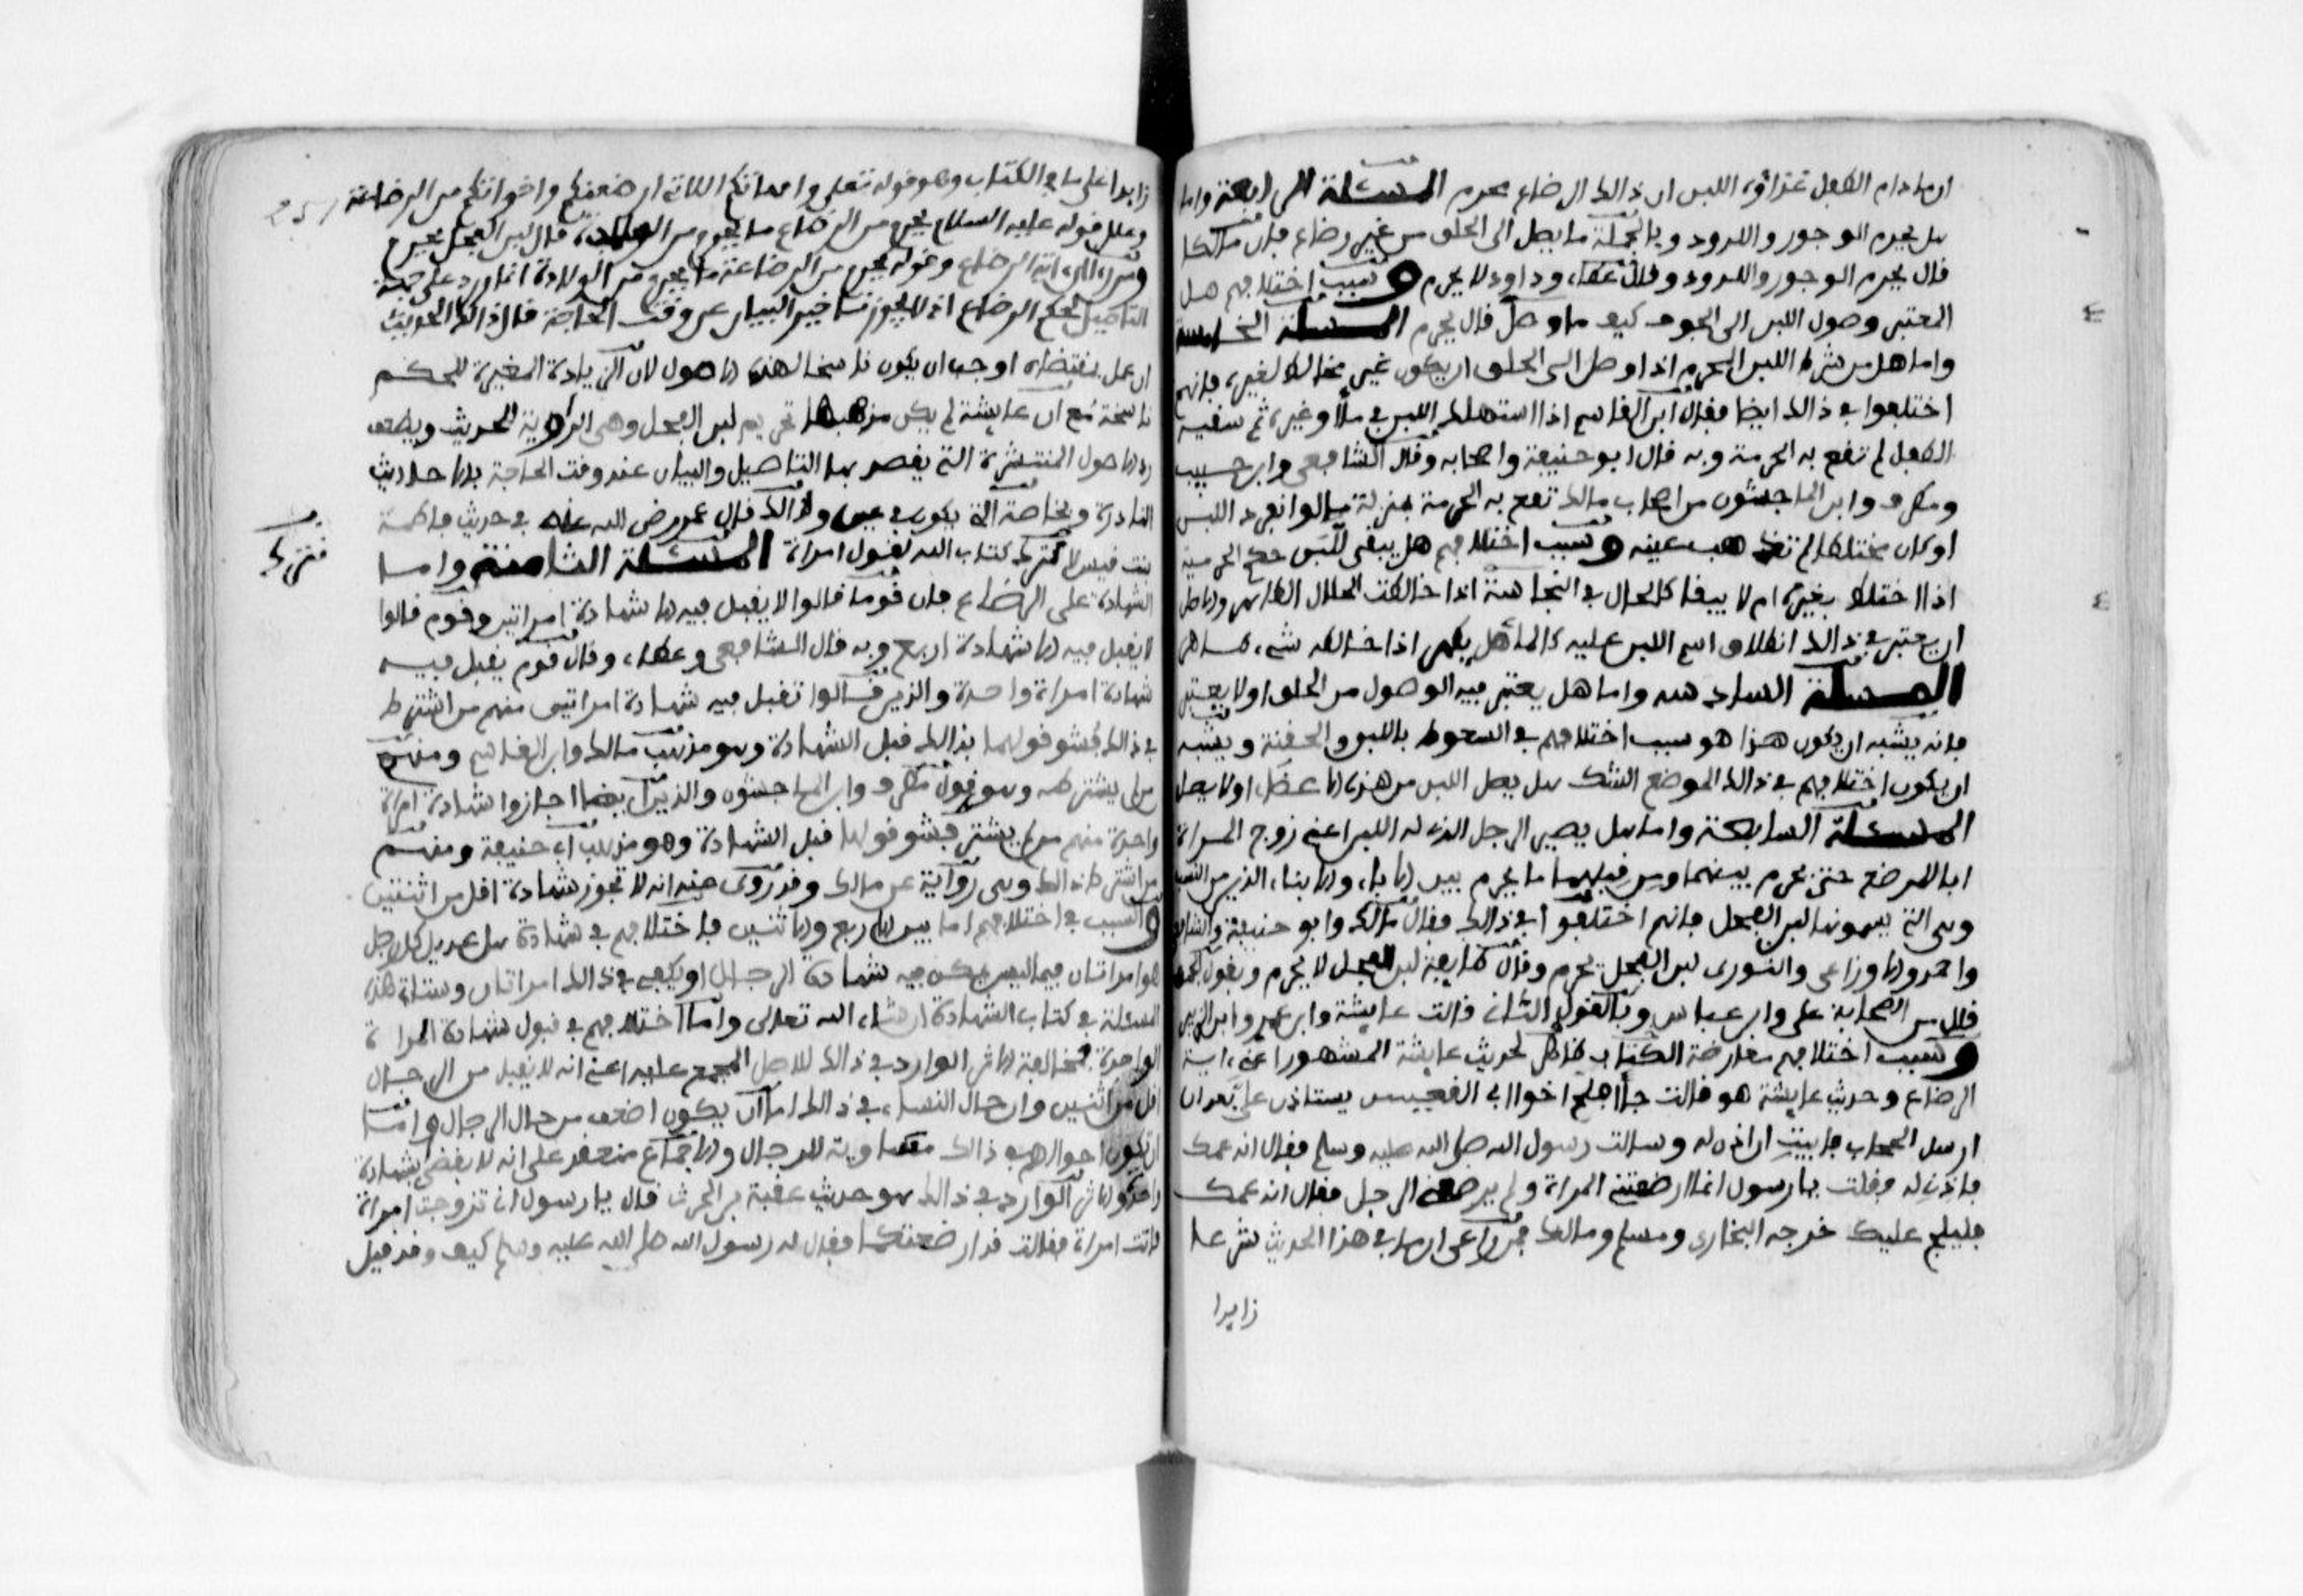 ان ما دام الطفل غذاؤه اللبن ان ذالك الرضاع يحرم المسئلة الرابعة واما
هل يحرم الوجور واللدود وبالجملة ما يصل الى الحلق من غير رضاع فان مالكا
قال يحرم الوجور واللدود وقال عطاء وداود لا يحرم وسبب اختلافهم هل
المعتبر وصول اللبن الى الجوف كيف ما وصل قال يحرم المسئلة الخامسة
واما هل من شرط اللبن المحرم اذا وصل الى الحلق ان يكون غير مخالط لغيره فانهم
اختلفوا في ذالك ايضا فقال ابن القاسم اذا استهلك اللبن في ماء او غيره ثم سقيه
الطفل لم تقع به الحرمة وبه قال ابو حنيفة واصحابه وقال الشافعي وابن حبيب
ومطرف وابن الماجشون من اصحاب مالك تقع به الحرمة بمنزلة ما لو انفرد اللبن
او كان مختلطا لم تذهب عينه وسبب اختلافهم هل يبقى للبن حكم الحرمية
اذا اختلط بغيره ام لا يبقا كالحال في النجاسة اذا خالطت الحلال الطاهر والاصل
ان يعتبر في ذالك انطلاق اسم اللبن عليه كالماء هل يطهر اذا خالطه شيء طاهر
المسئلة السادسة واما هل يعتبر فيه الوصول من الحلق او لا يعتبر
فانه يشبه ان يكون هذا هو سبب اختلافهم في السعوط باللبن والحقنة ويشبه
ان يكون اختلافهم في ذالك الموضع الشك هل يصل اللبن من هذه الاعضاء او لا يصل
المسئلة السابعة واما هل يصير الرجل الذي له اللبن اعني زوج المراة
ابا للمرضع حتى يحرم بينهما ومن قبلهما ما يحرم بين الاباء والابناء الذين من النسب
وهي التي يسمونها لبن الفحل فانهم اختلفوا في ذالك فقال مالك وابو حنيفة والشافعي
واحمد والاوزاعي والثوري لبن الفحل يحرم وقال طايفة لبن الفحل لا يحرم وبقول
قال من الصحابة علي وابن عباس وبالقول الثاني قالت عايشة وابن عمر وابن الزبير
وسبب اختلافهم معارضة الكتاب ظاهر لحديث عايشة المشهور اعني اية
الرضاع وحديث عايشة هو قالت جاء افلح اخو ابي القعيس يستاذن علي بعد ان
ارسل الحجاب فابيت ان اذن له وسالت رسول الله صلى الله عليه وسلم فقال انه عمك
فاذني له فقلت يا رسول انما ارضعتني المراة ولم يرضعني الرجل فقال انه عمك
فليلج عليك خرجه البخاري ومسلم ومالك فمن راعى ان ما في هذا الحديث شرعا
زايدا
زايدا على ما في الكتاب وهو قوله تعلى وامهاتكم اللاتي ارضعنكم واخواتكم من الرضاعة
251
وعلى قوله عليه السلام يحرم من الرضاع ما يحرم من الولادة قال لبن الفحل يحرم
ومن راى ان اية الرضاع وقوله يحرم من الرضاعة ما يحرم من الولادة انما ورد على جهة
التاصيل لحكم الرضاع اذ لا يجوز تاخير البيان عن وقت الحاجة قال ذالك الحديث
ان عمل بمقتضاه اوجب ان يكون ناسخا لهذه الاصول لان الزيادة المغيرة للحكم
ناسخة مع ان عايشة لم يكن مذهبها تحريم لبن الفحل وهي الراوية للحديث ويضعف
رد الاصول المنتشرة التي يقصد بها التاصيل والبيان عند وقت الحاجة بالاحاديث
النادرة وبخاصة التي تكون في عين ولذالك قال عمر رضي الله عنه في حديث فاطمة
بنت قيس لا نترك كتاب الله لقول امراة المسئلة الثامنة واما
نترك
الشهادة على الرضاع فان قوما قالوا لا يقبل فيه الا شهادة امراتين وقوم قالوا
لا يقبل فيه الا شهادة اربع وبه قال الشافعي وعطاء وقال قوم يقبل فيه
شهادة امراة واحدة والذين قالوا تقبل فيه شهادة امراتين منهم من اشترط
في ذالك فشو قولهما بذالك قبل الشهادة وهو مذهب مالك وابن القاسم ومنهم
من لم يشترطه وهو قول مطرف وابن الماجشون والذين ايضا اجازوا شهادة امراة
واحدة منهم من لم يشترط فشو قولها قبل الشهادة وهو مذهب ابي حنيفة ومنهم
من اشترط ذالك وهي رواية عن مالك وقد روي عنه انه لا تجوز شهادة اقل من اثنتين
والسبب في اختلافهم اما بين الاربع والاثنتين فاختلافهم في شهادة هل عديل كل رجل
هو امراتان فيما ليس يمكن فيه شهادة الرجال او يكفي في ذالك امراتان وستاتي هذه
المسئلة في كتاب الشهادة ان شاء الله تعالى واما اختلافهم في قبول شهادة المراة
الواحدة فمخالفة الاثر الوارد في ذالك للاصل المجمع عليه اعني انه لا يقبل من الرجال
اقل من اثنين وان حال النساء في ذالك اما ان يكون اضعف من حال الرجال واما
ان تكون احوالهم في ذالك مساوية للرجال والاجماع منعقد على انه لا يقضى بشهادة
واحدة والاثر الوارد في ذالك هو حديث عقبة بن الحرث قال يا رسول اني تزوجت امراة
فاتت امراة فقالت قد ارضعتكما فقال له رسول الله صلى الله عليه وسلم كيف وقد قيل